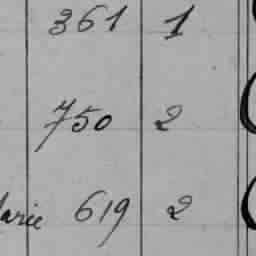 361 1
750 2
arie 619 2